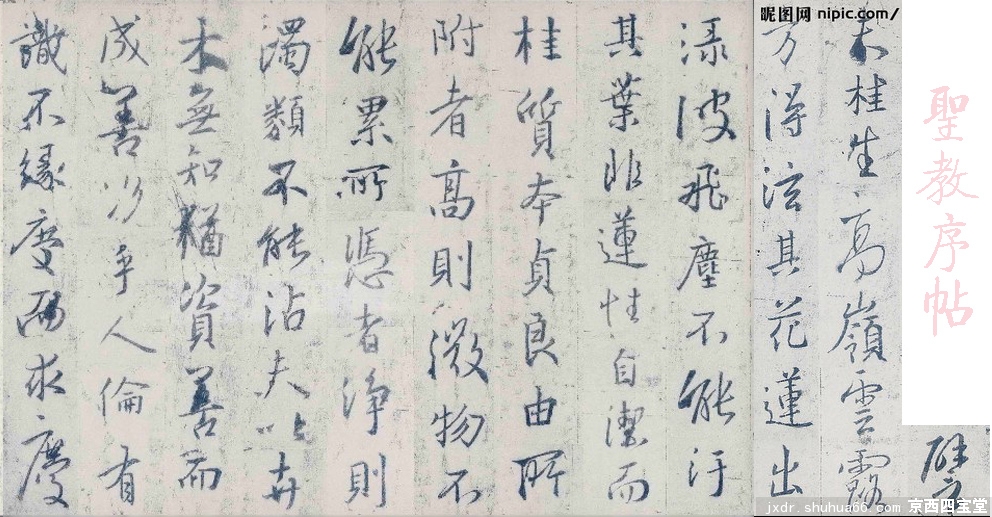 聖教序帖
譬
夫桂生高嶺雲露
方得泫其花蓮出
渌波飛塵不能汙
其葉非蓮性自潔而
桂質本貞良由所
附者高則微物不
能累所憑者淨則
濁類不能沾夫以卉
木無知猶資善而
成善況乎人倫有
識不緣慶而求慶
昵图网 nipic.com/
jxdr.shuhua66.com 京西四宝堂